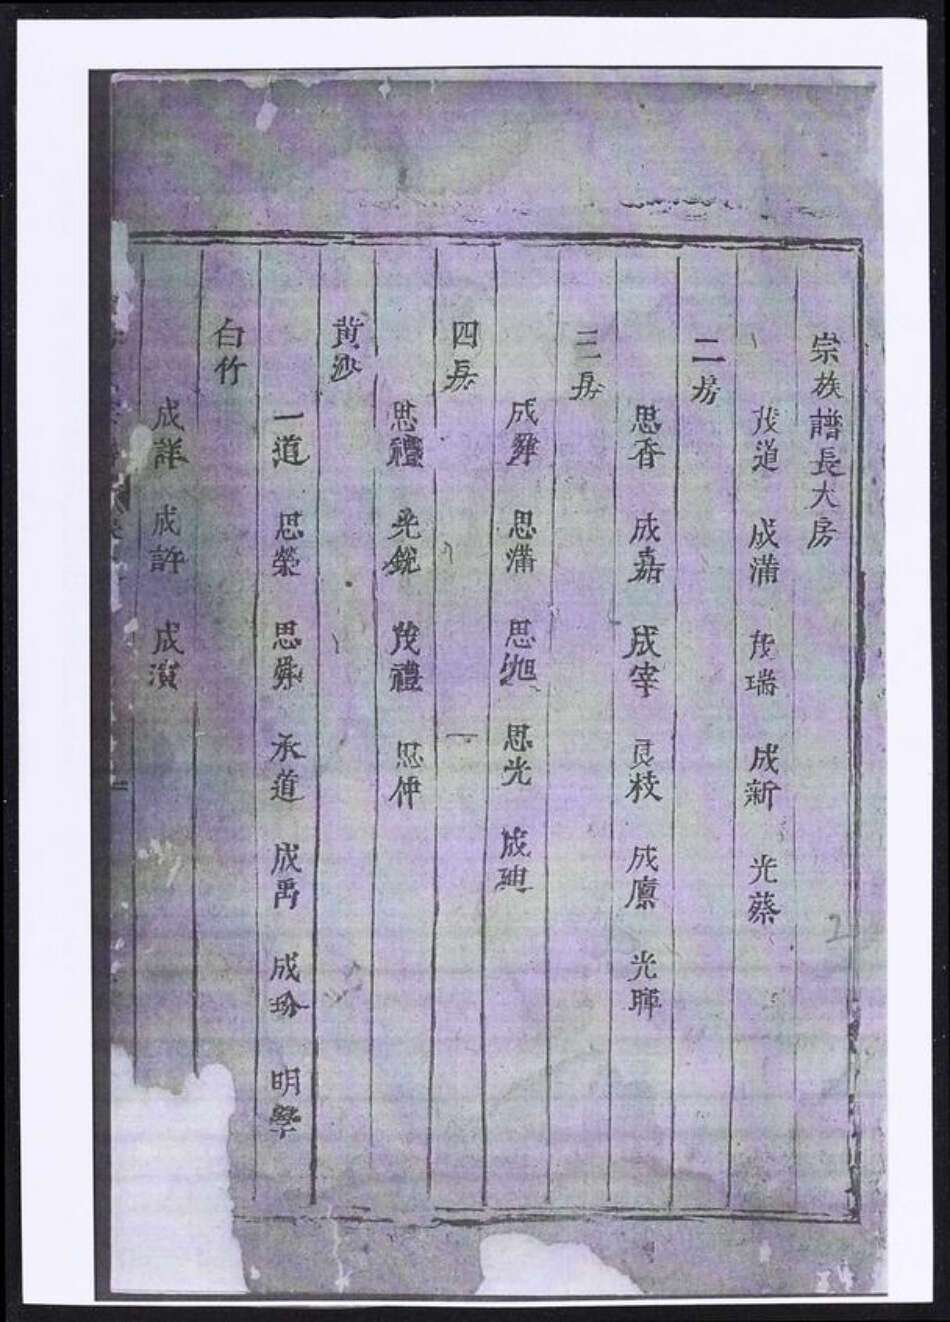 宗族譜長大房
茂道 成滿 茂瑞 成新 光蔡
二房
思香 成嘉 成宰 良枝 成廪 光暉
三房
成舜 思滿 思旭 思光 成
四房
思禮 光銳 茂禮 思仲
黄沙
一道 思榮 思舜 承道 成禹 成珍 明學
白竹
成詳 成許 成濱
2